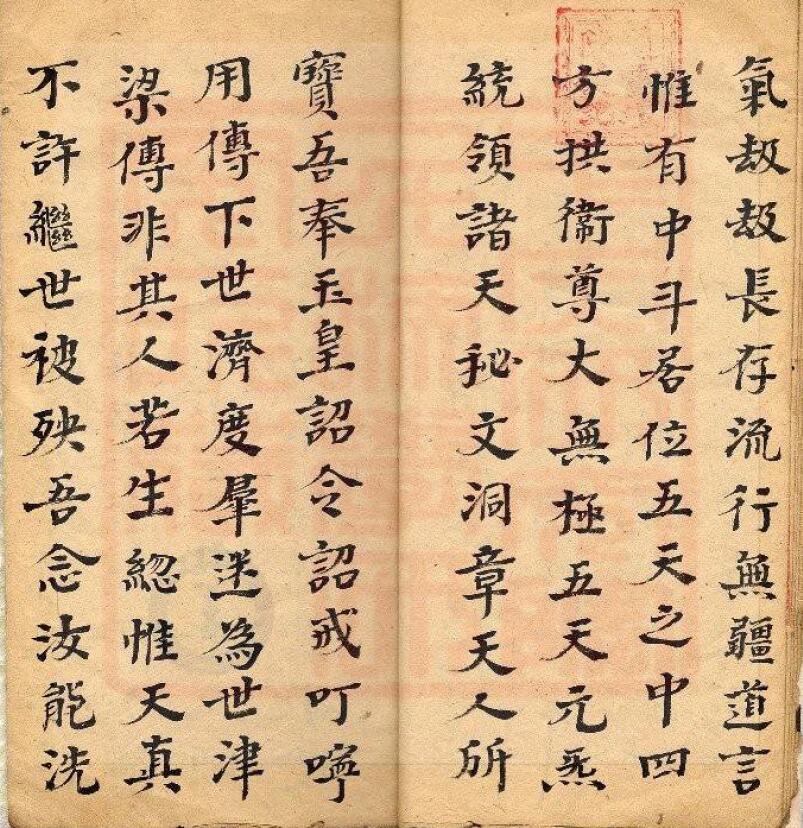 氣劫劫長存流行無疆道言
惟有中斗居位五天之中四
方拱衞尊大無極五天元炁
統領諸天秘文洞章天人所
寶吾奉玉皇詔令詔戒叮嚀
用傳下世濟度羣迷為世津
梁傳非其人若生緫惟天真
不許繼世被殃吾念汝能洗